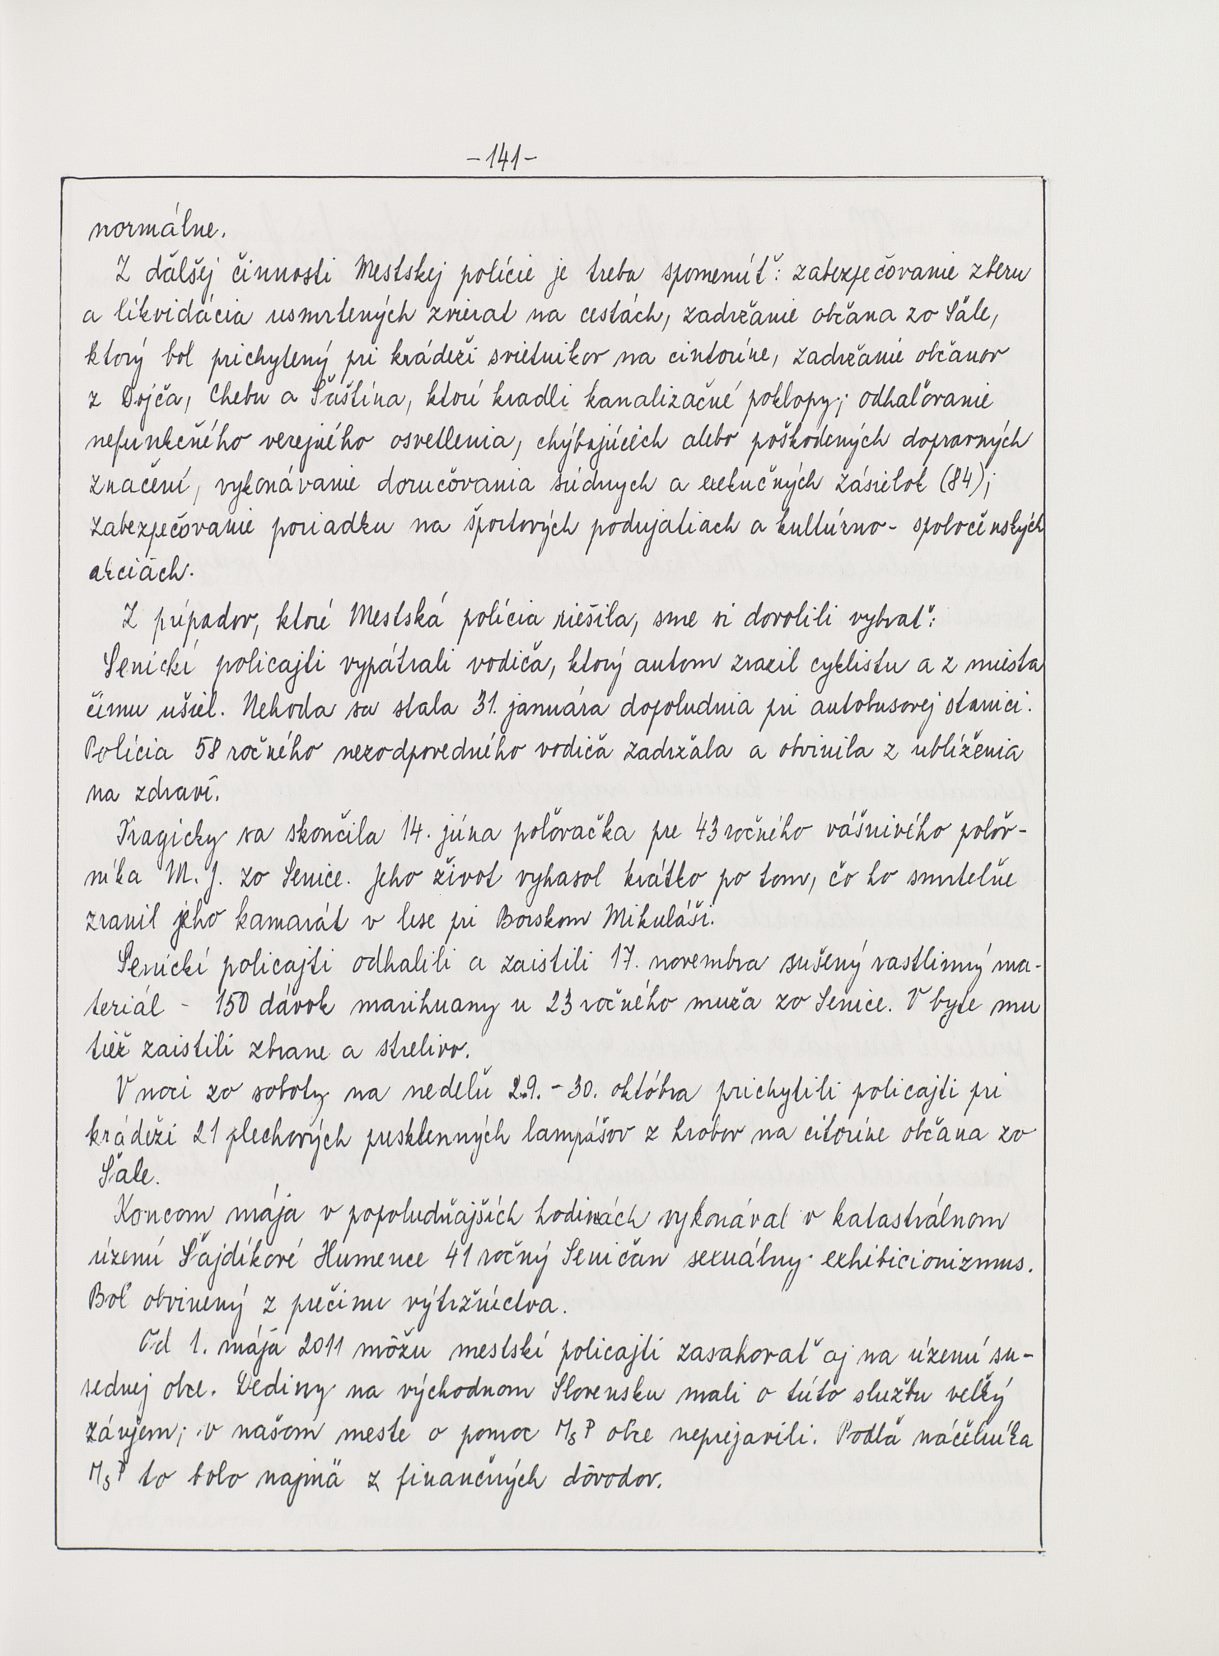 -141-
normálne.
Z ďalšej činnosti Mestskej polície je treba spomenúť: zabezpečovanie zberu
a likvidácia usmrtených zvierat na cestách, zadržanie občana zo Šále,
ktorý bol prichytený pri krádeži svietnikov na cintoríne, zadržanie občanov
z Dojča, Chebu a Šaštína, ktorí kradli kanalizačné poklopy; odhaľovanie
nefunkčného verejného osvetlenia, chýbajúcich alebo poškodených dopravných
značení, vykonávanie doručovania súdnych a exekučných zásielok (84);
zabezpečovanie poriadku na športových podujatiach a kultúrno-spoločenských
akciách.
Z prípadov, ktoré Mestská polícia riešila, sme si dovolili vybrať:
Senickí policajti vypátrali vodiča, ktorý autom zrazil cyklistu a z miesta
činu ušiel. Nehoda sa stala 31. januára dopoludnia pri autobusovej stanici.
Polícia 58 ročného nezodpovedného vodiča zadržala a obvinila z ublíženia
na zdraví.
Tragicky sa skončila 14. júna poľovačka pre 43 ročného vášnivého poľov-
níka M. J. zo Senice. Jeho život vyhasol krátko po tom, čo ho smrteľne
zranil jeho kamarát v lese pri Borskom Mikuláši.
Senickí policajti odhalili a zaistili 17. novembra sušený rastlinný ma-
teriál - 150 dávok marihuany u 23 ročného muža zo Senice. V byte mu
tiež zaistili zbrane a strelivo.
V noci zo soboty na nedeľu 29. - 30. októbra prichytili policajti pri
krádeži 21 plechových presklenných lampášov z hrobov na citoríne občana zo
Šale.
Koncom mája v popoludňajších hodinách vykonával v katastrálnom
území Šajdíkové Humence 41 ročný Seničan sexuálny exhibicionizmus.
Bol obvinený z prečinu výtržníctva.
Od 1. mája 2011 môžu mestskí policajti zasahovať aj na území su-
sednej obce. Dediny na východnom Slovensku mali o túto službu veľký
záujem; v našom meste o pomoc MsP obce neprejavili. Podľa náčelníka
MsP to bolo najmä z finančných dôvodov.